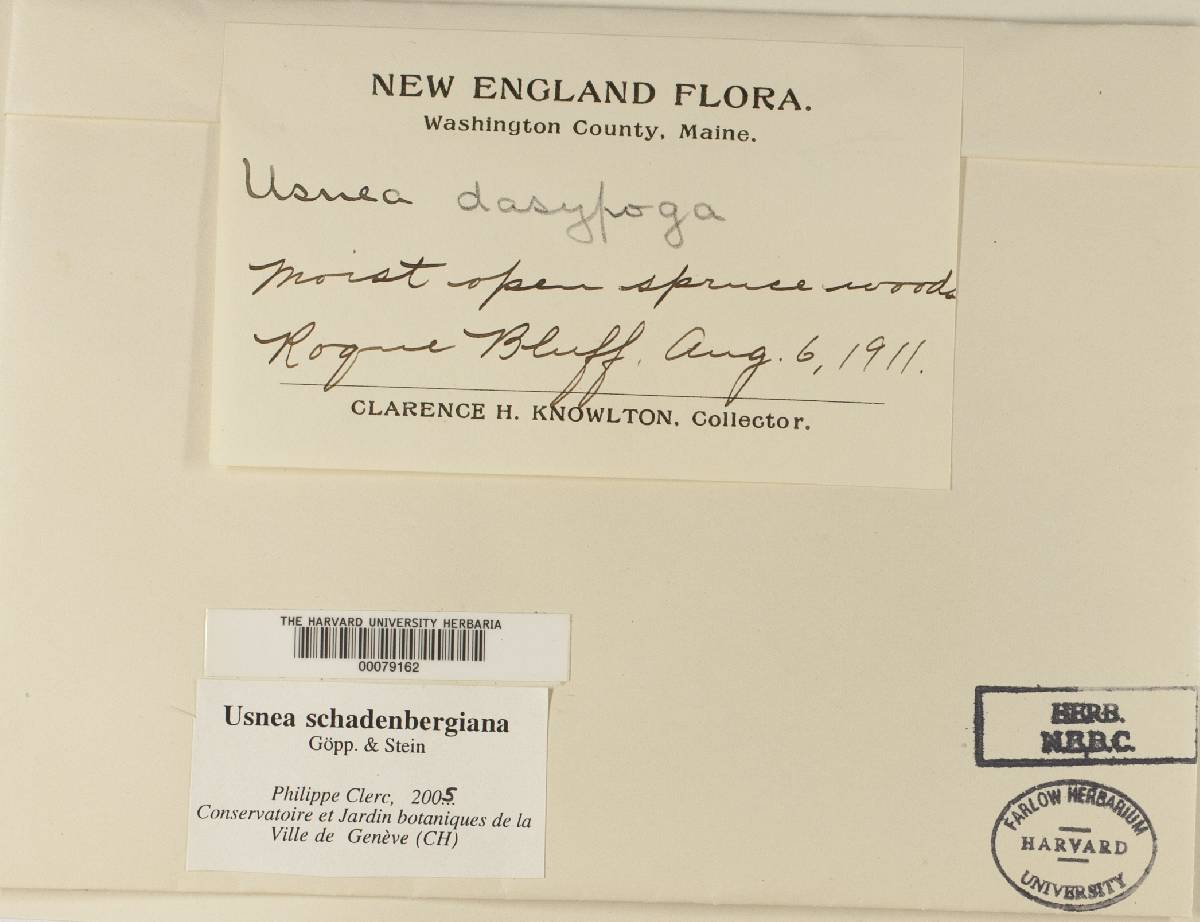 NEW ENGLAND FLORA.
Washington County, Maine.
Usnea dasypoga
Moist open spruce woods
Roque Bluff. Aug. 6, 1911.
CLARENCE H. KNOWLTON, Collector.
THE HARVARD UNIVERSITY HERBARIA
00079162
Usnea schadenbergiana
Göpp. & Stein
Philippe Clerc, 2005.
Conservatoire et Jardin botaniques de la
Ville de Genève (CH)
HERB.
N.E.B.C.
FARLOW HERBARIUM
HARVARD
UNIVERSITY